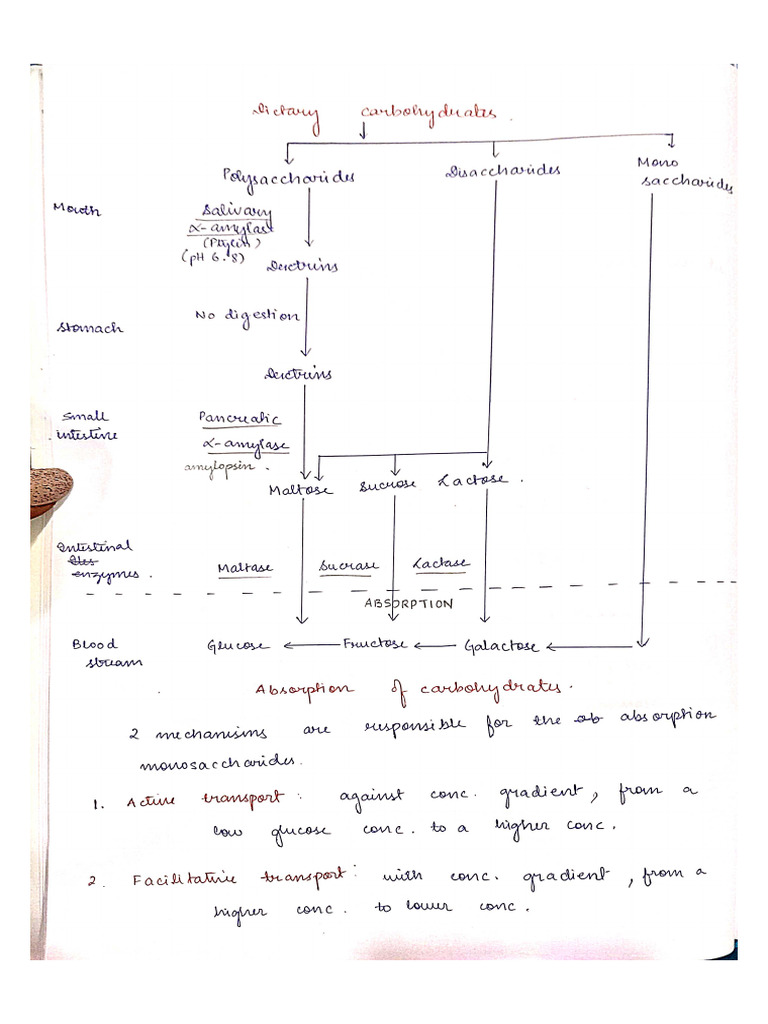 Dietary carbohydrates.
Polysaccharides Disaccharides Mono
saccharides
Mouth Salivary
α-amylase
(Ptyalin)
(pH 6.8)
Dextrins
Stomach No digestion
Dextrins
Small Pancreatic
intestine α-amylase
amylopsin.
Maltose Sucrose Lactose.
Intestinal
enzymes. Maltase Sucrase Lactase
ABSORPTION
Blood Glucose Fructose Galactose
stream
Absorption of carbohydrates.
2 mechanisms are responsible for the ab absorption
monosaccharides.
1. Active transport: against conc. gradient, from a
low glucose conc. to a higher conc.
2. Facilitative transport: with conc. gradient, from a
higher conc. to lower conc.